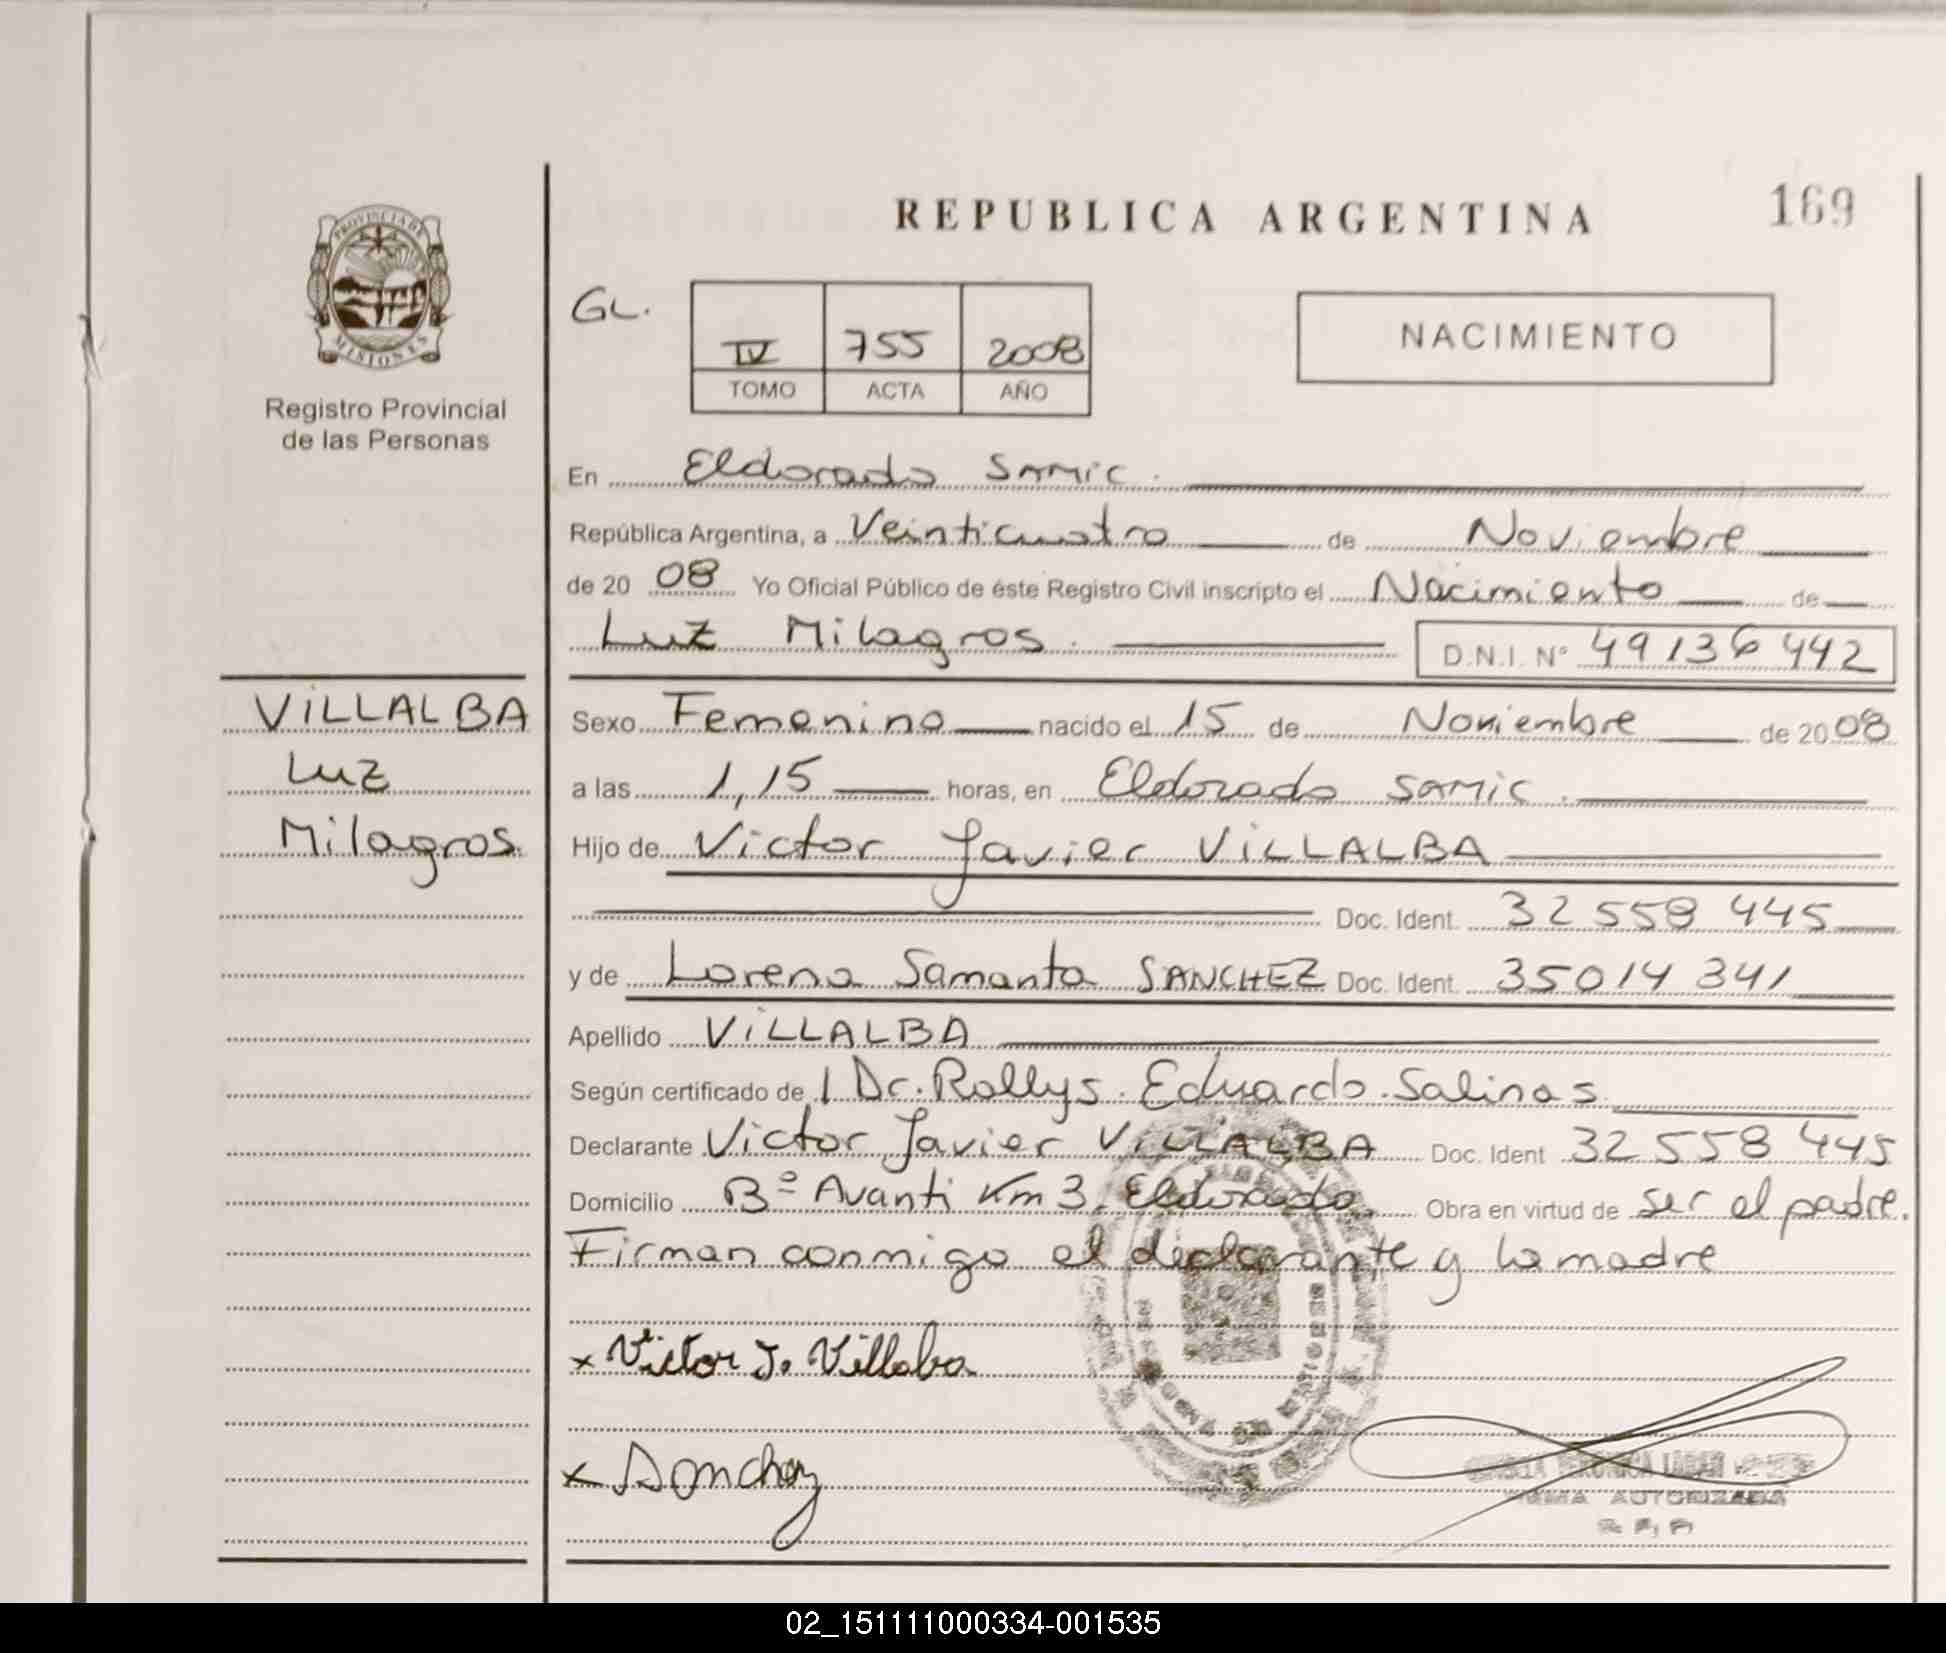 REPUBLICA ARGENTINA
169
PROVINCIA DE
MISIONES
Registro Provincial
de las Personas
GL.
IV 755 2008
TOMO ACTA AÑO
NACIMIENTO
En Eldorado SAMIC.
República Argentina, a Veinticuatro de Noviembre
de 20 08 Yo Oficial Público de éste Registro Civil inscripto el Nacimiento de
Luz Milagros. D.N.I. Nº 49136442
VILLALBA
Luz
Milagros.
Sexo Femenino nacido el 15 de Noviembre de 2008
a las 1,15 horas, en Eldorado SAMIC.
Hijo de Victor Javier VILLALBA
Doc. Ident. 32 558 445
y de Lorena Samanta SANCHEZ Doc. Ident. 35014 341
Apellido VILLALBA
Según certificado de 1 Dr. Rollys Eduardo Salinas
Declarante Victor Javier VILLALBA Doc. Ident 32 558 445
Domicilio Bº Avanti Km 3. Eldorado. Obra en virtud de ser el padre.
Firman conmigo el declarante y la madre
x Victor J. Villalba
x Sanchez
FIRMA AUTORIZADA
02_151111000334-001535